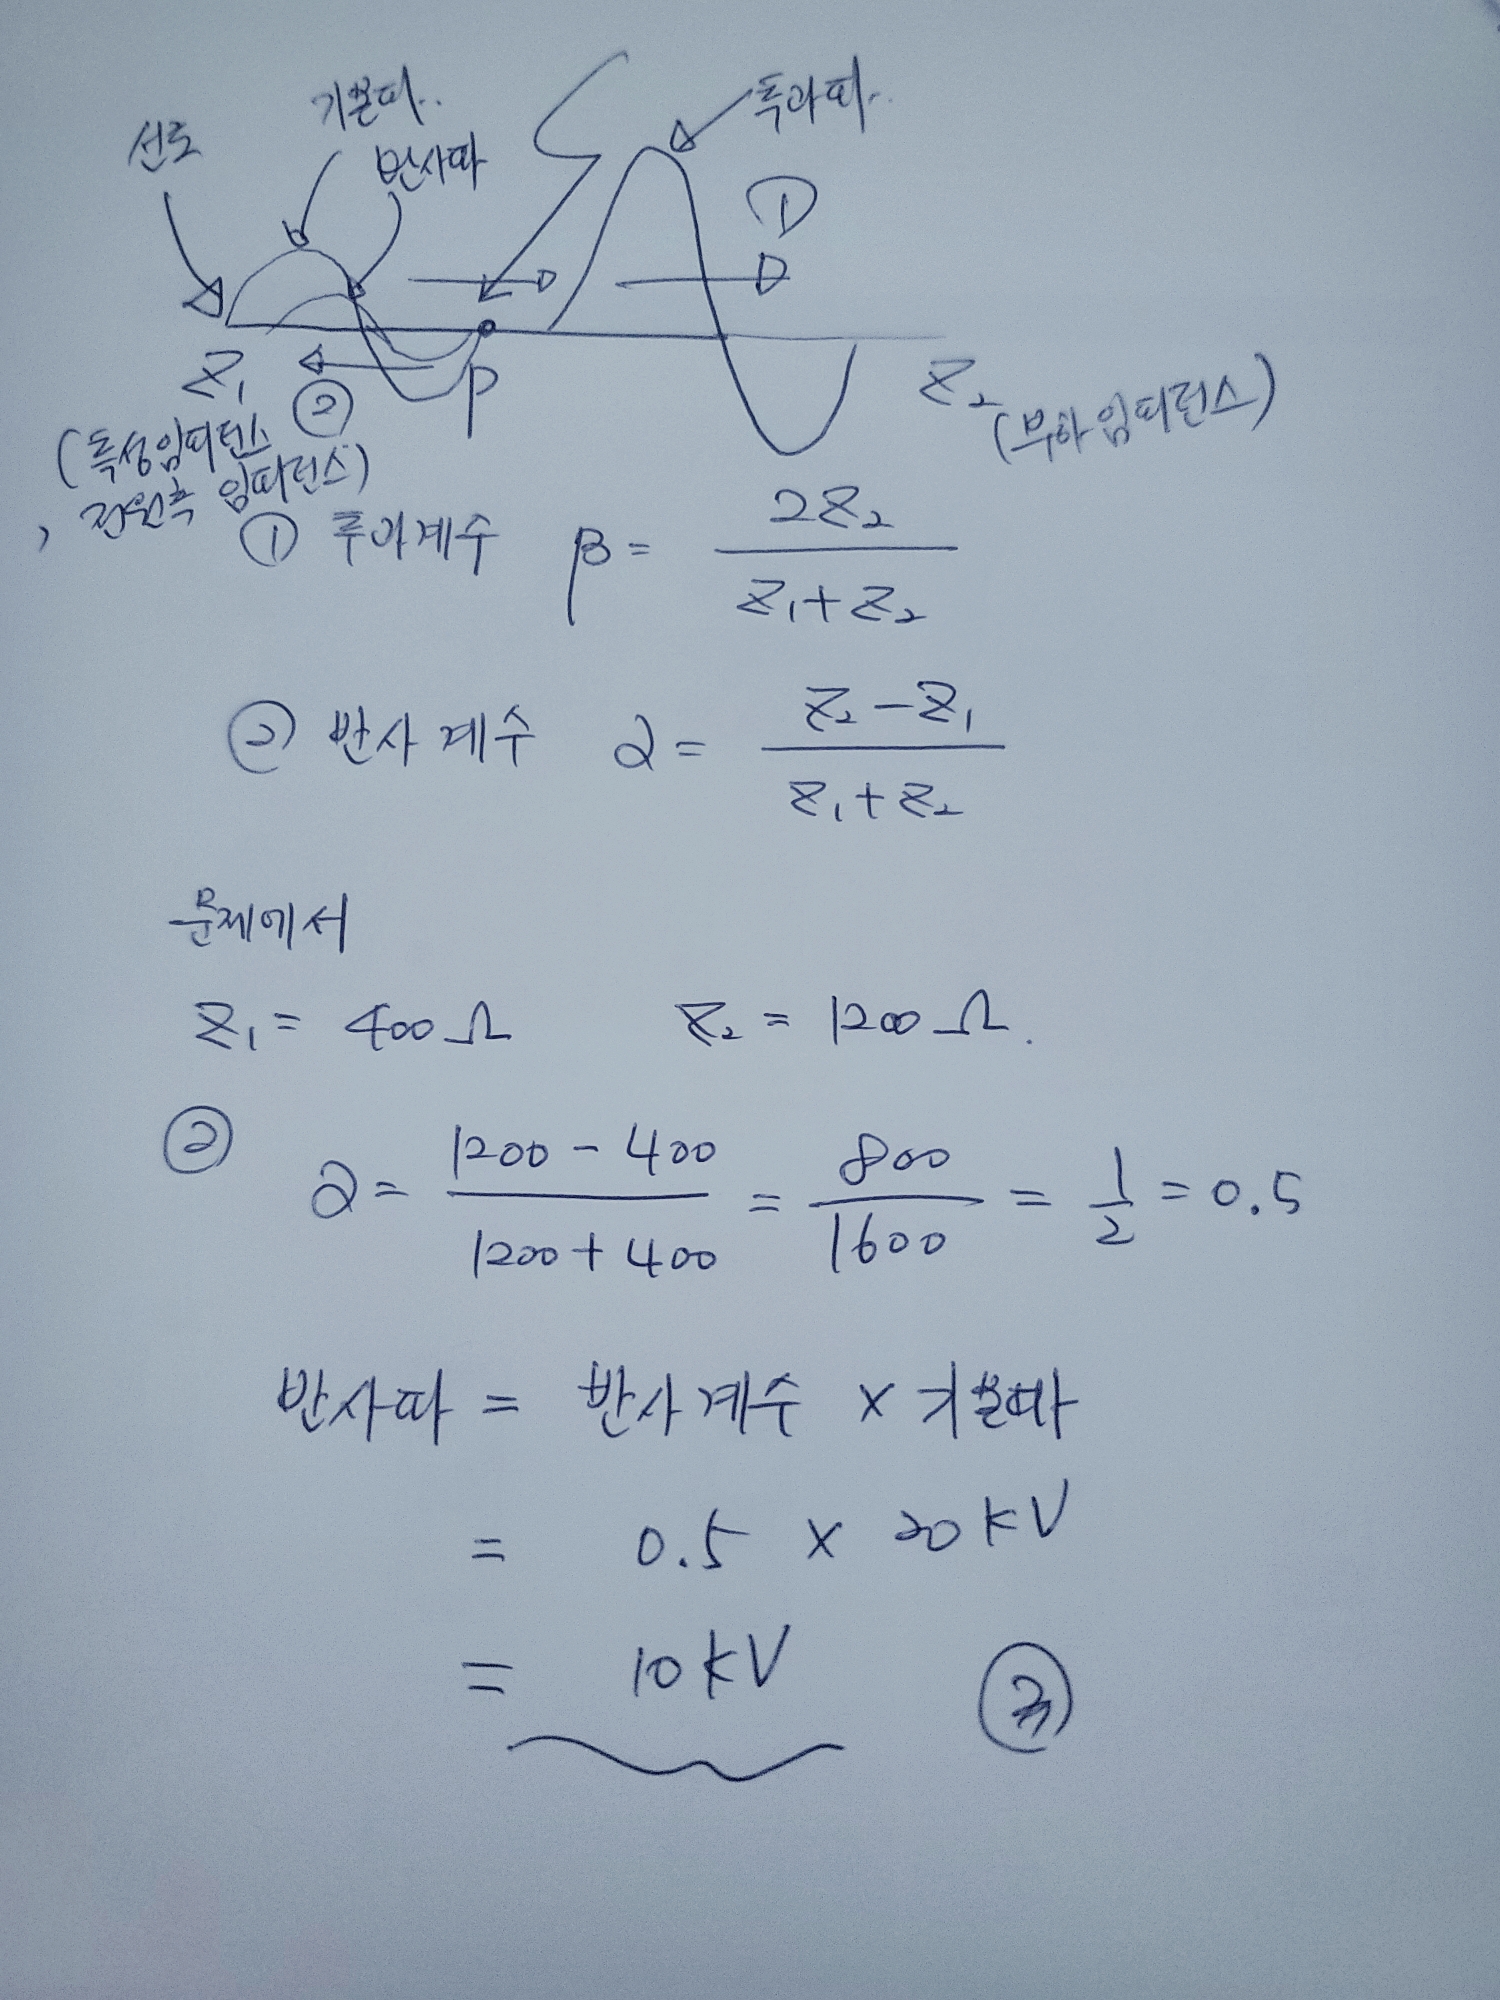 선로
기본파..
반사파
투과파..
①
Z₁
②
P
Z₂
(부하임피던스)
(특성임피던스
, 전원측 임피던스)
① 투과계수 β = 2Z₂ / Z₁+Z₂
② 반사계수 α = Z₂-Z₁ / Z₁+Z₂
문제에서
Z₁ = 400Ω Z₂ = 1200Ω.
② α = 1200-400 / 1200+400 = 800 / 1600 = 1/2 = 0.5
반사파 = 반사계수 × 기본파
= 0.5 × 20kV
= 10kV